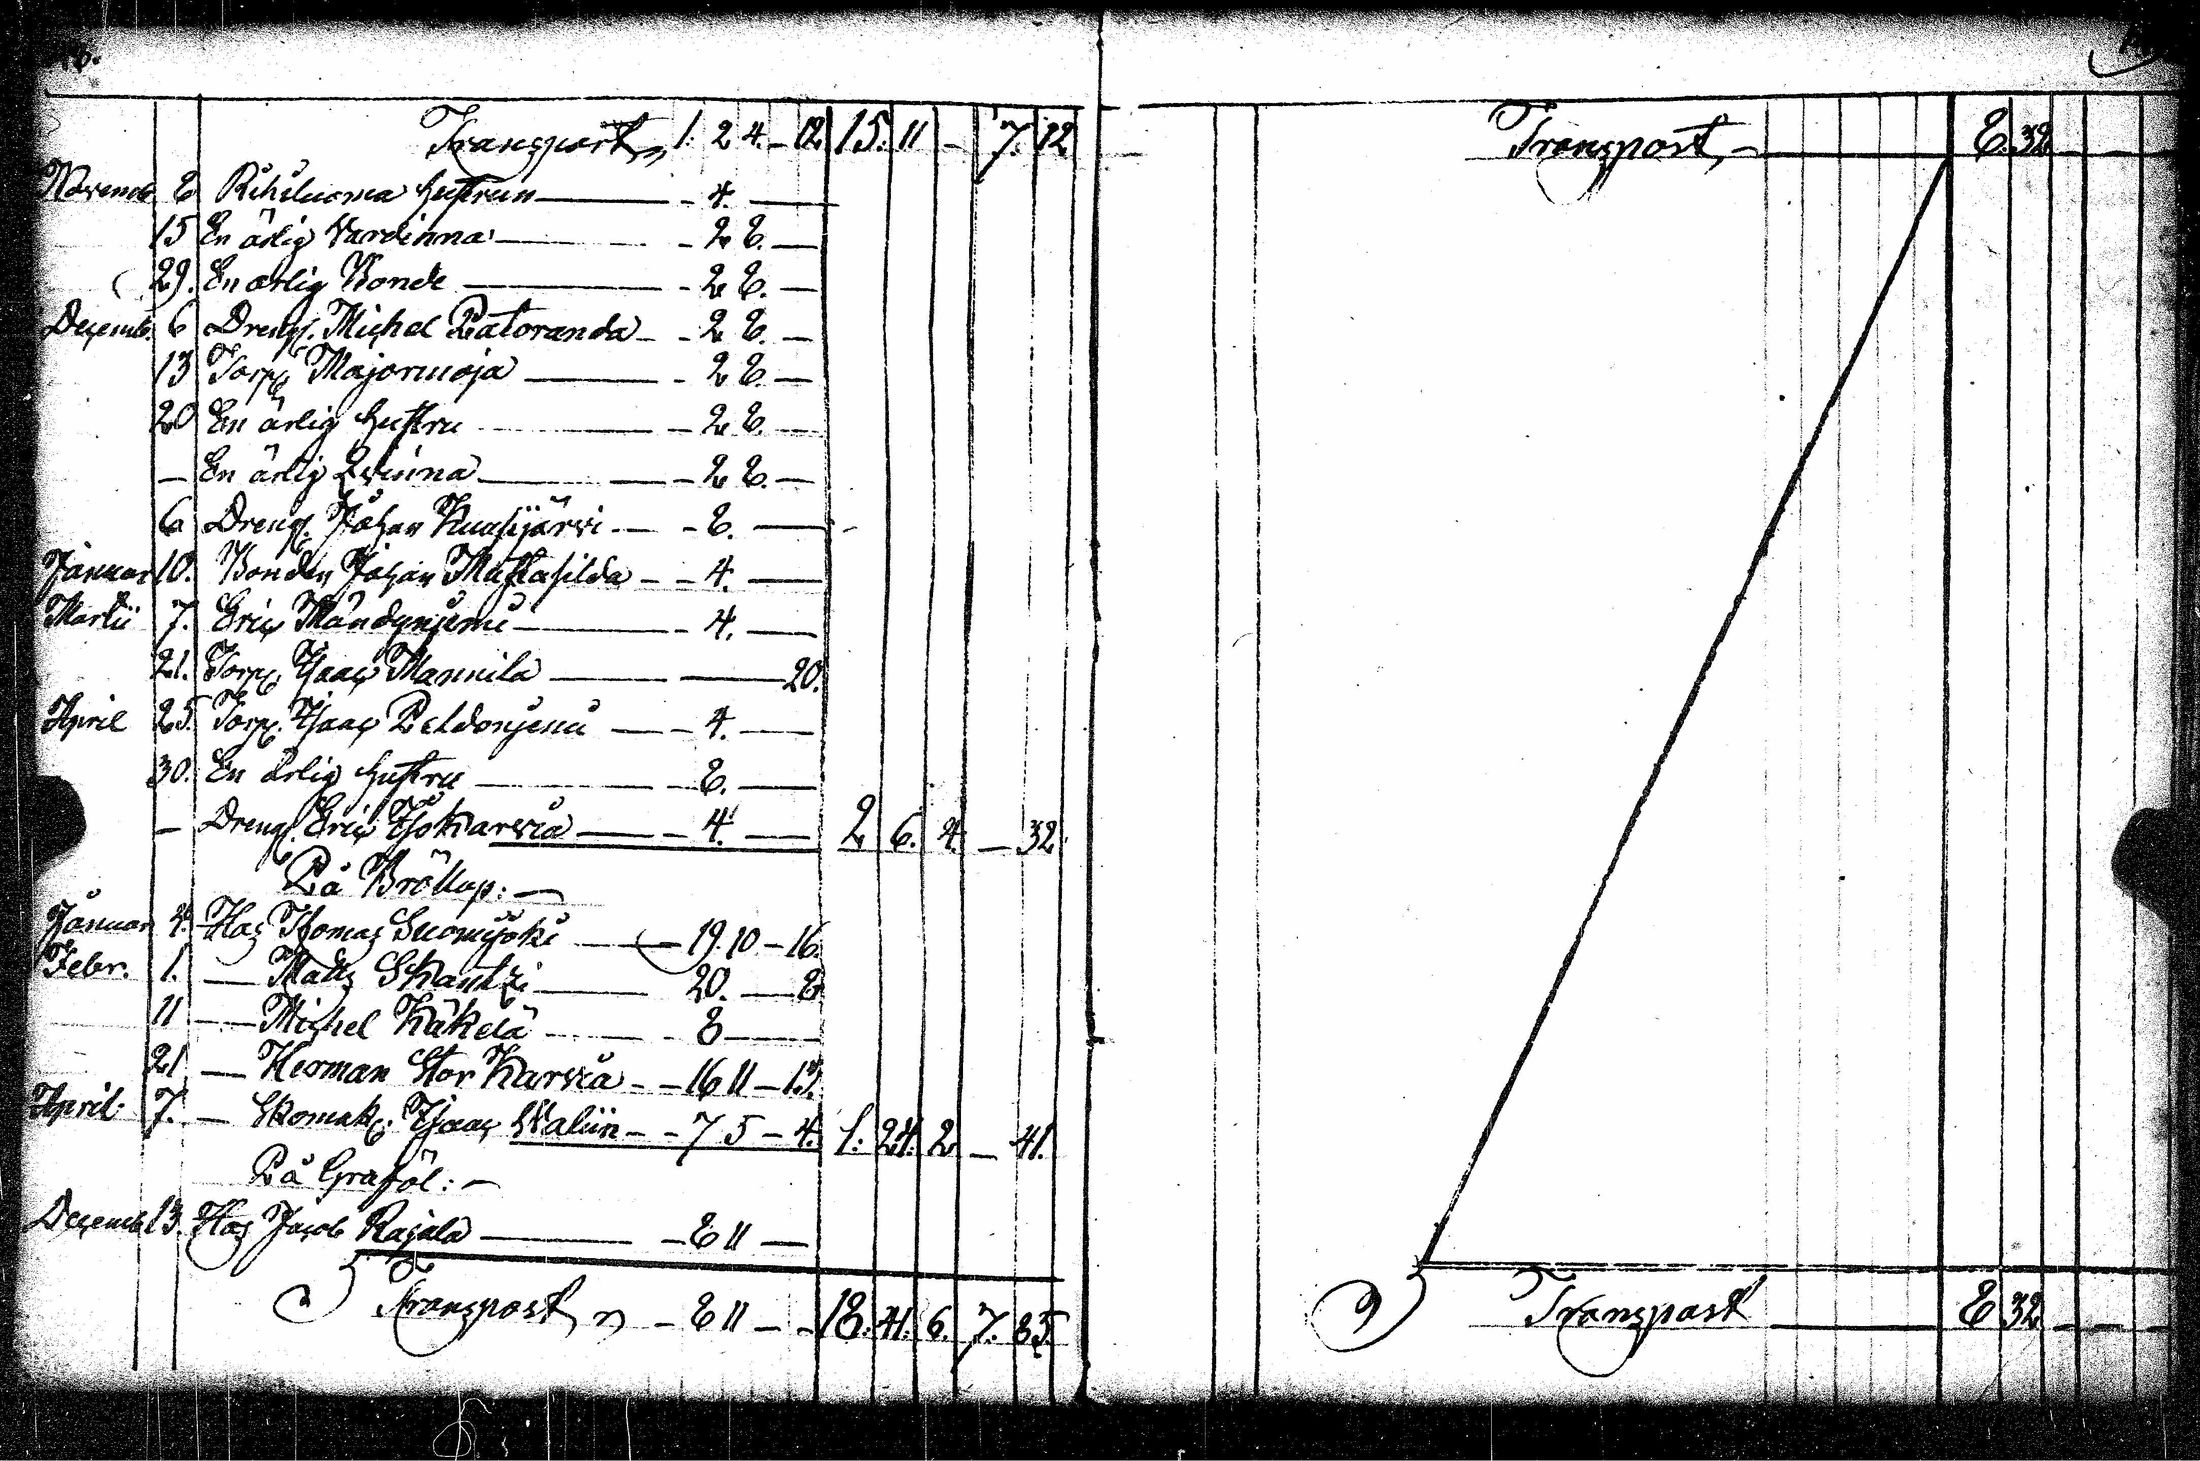 Transport, 1. 2 4. - 12 15. 11 - 7. 12
Novemb. 8 Rihiluoma hustrun - 4. -
15 En ärlig Värdinna - 2 8. -
29. En ärlig Bonde - 2 8. -
Decemb. 6 Dreng. Michel Patoranda - 2 8. -
13 Torp. Majormoja - 2 8. -
20 En ärlig hustru - 2 8. -
- En ärlig Qvinna - 2 8. -
6 Dreng. Johan - 8. -
Januar 10. Bonden Johan - 4. -
Martii 7. Eric - 4. -
21. Torp. Isaac Mannila - 20.
April 25. Torp. Isaac Peldoniemi - 4. -
30. En ärlig hustru - 8. -
- Dreng. Eric - 4. - 2 6. 4. - 32
På Bröllop: -
Januar 4. Hos Thomas Suomijoki - 19. 10 - 16.
Febr. 1. - Matts Skantzi - 20. - 8
11 - Michel Käkelä - 8 -
21 - Herman Stor Karvia - 16 11 - 17.
April 7. - Skomak. Isaac Waliin - 7 5 - 4. 1. 24. 2 - 41.
På Graföl: -
Decemb. 13. Hos Jacob Rajala - 8 11 -
Transport, - 8 11 - 18. 41. 6. 7. 85.
Transport, - 8. 32. - -
Transport - 8 32 - - -